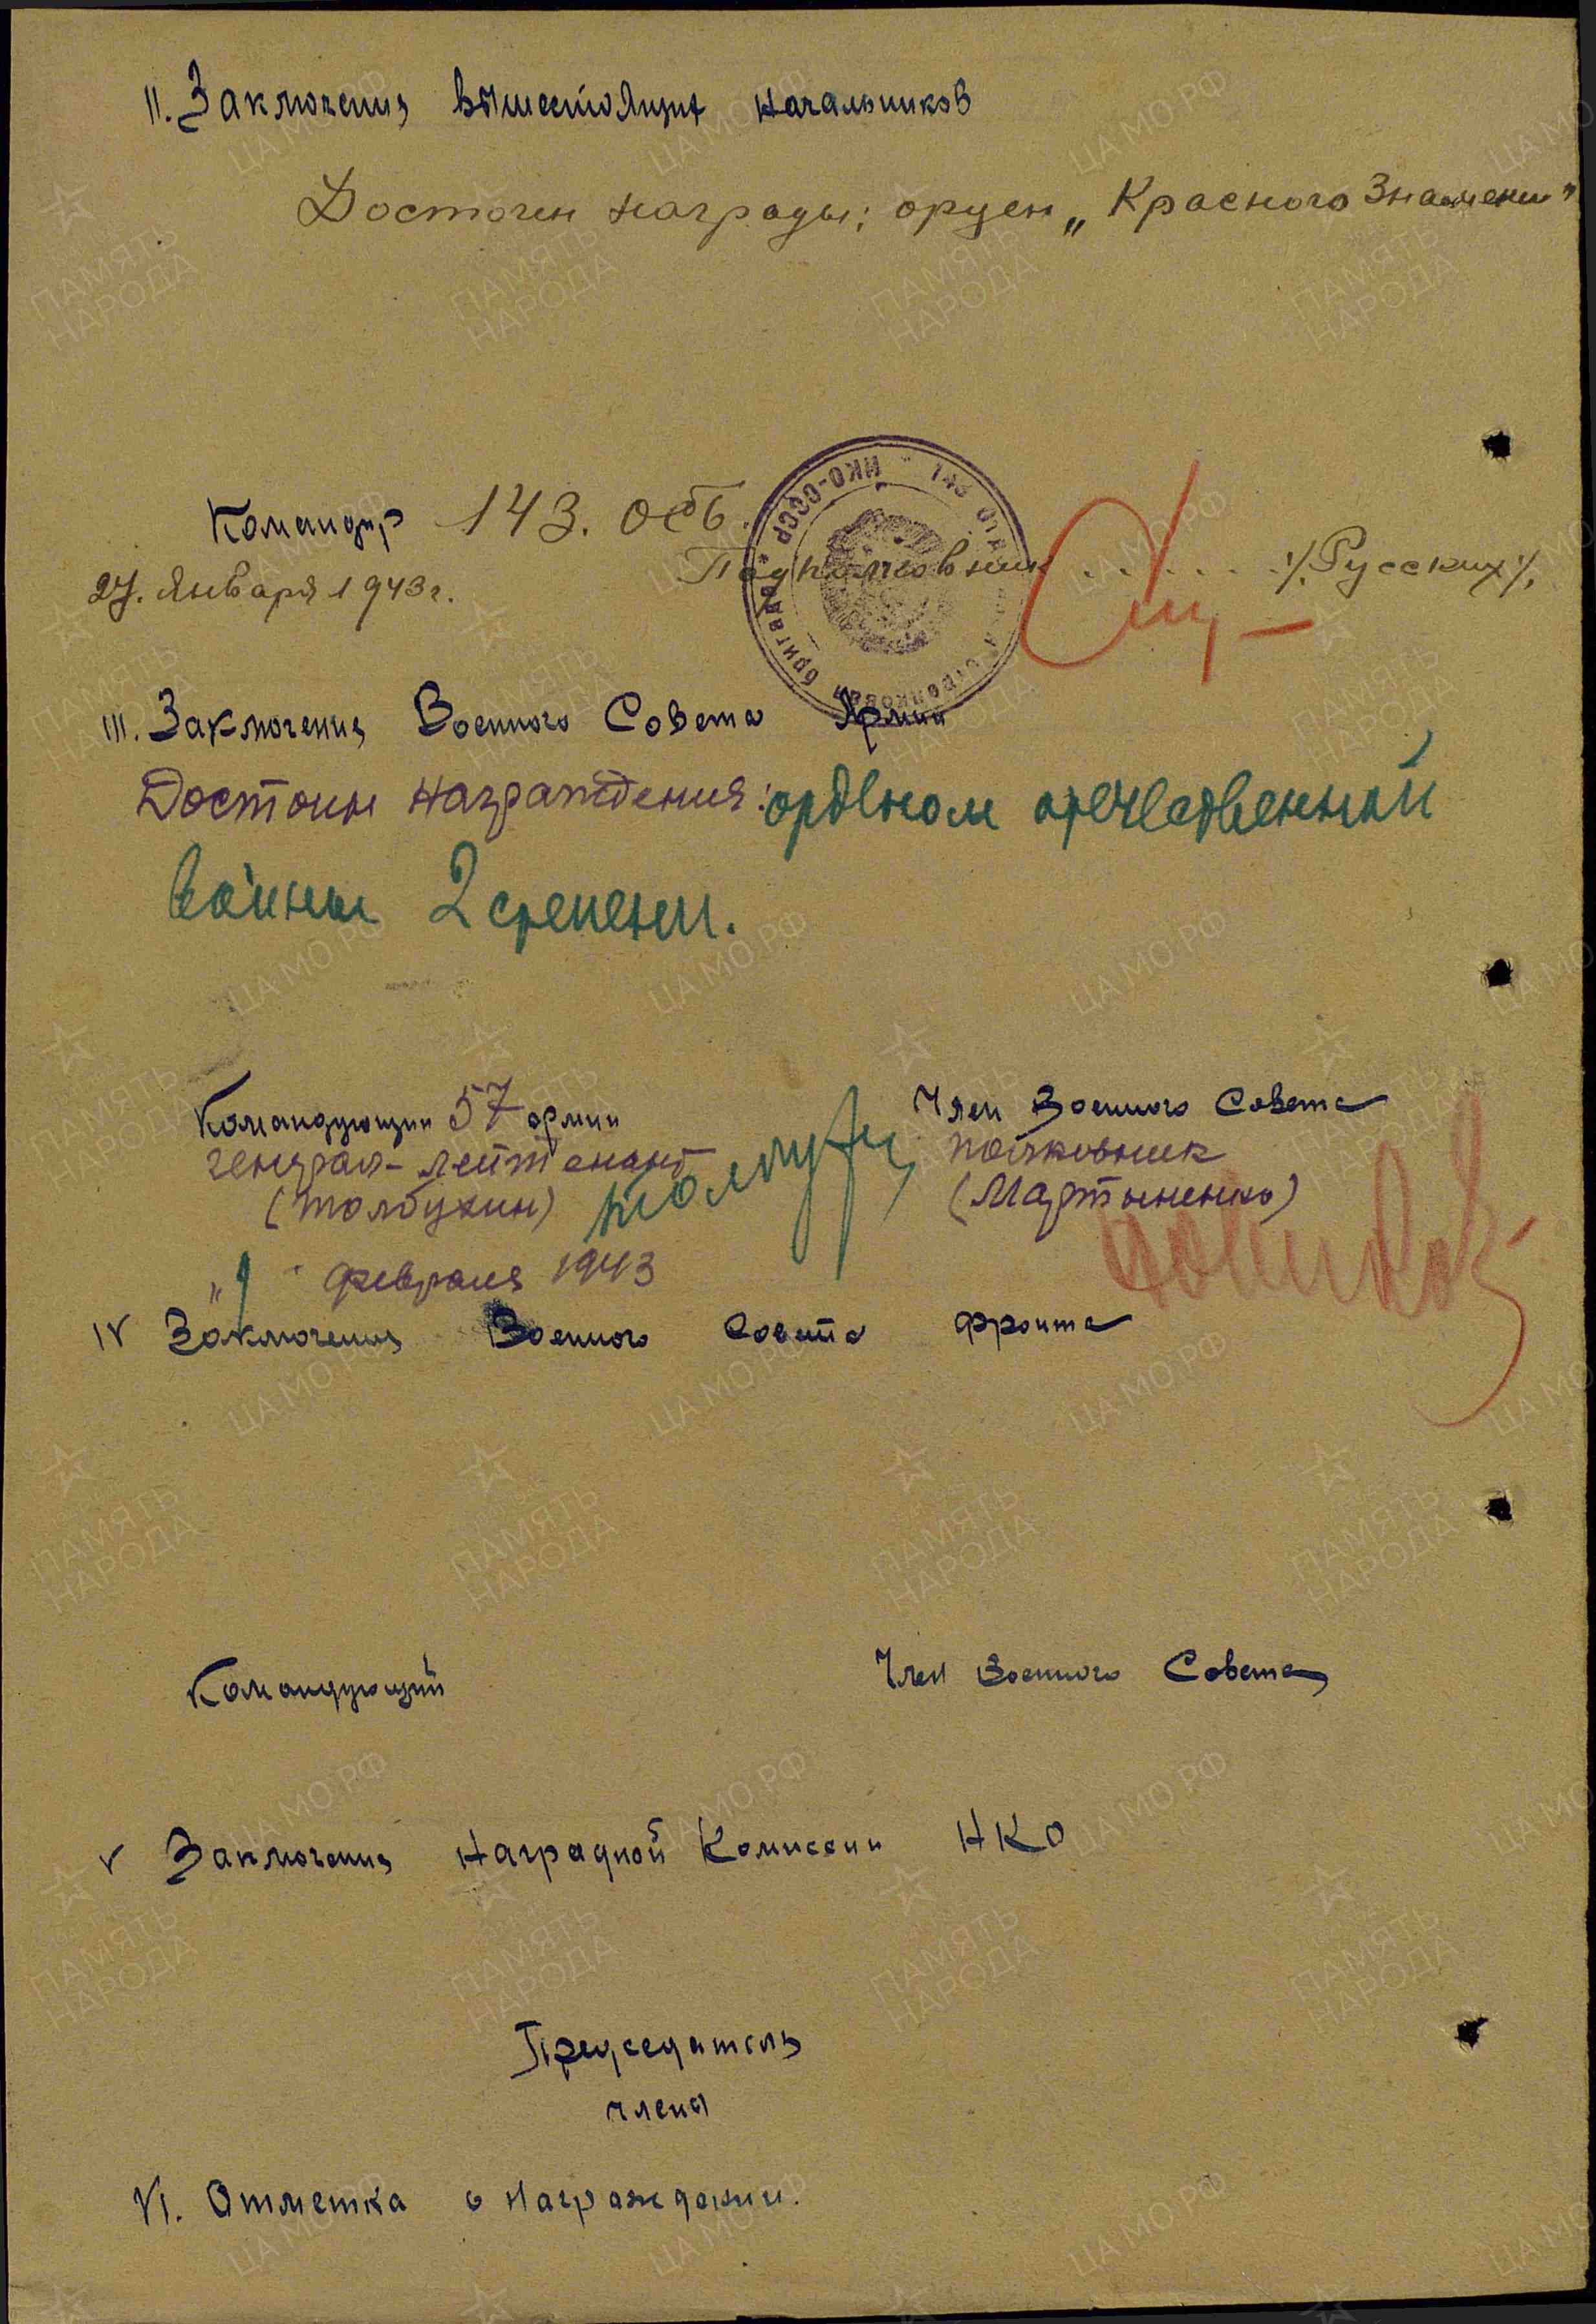 II. Заключения вышестоящих начальников
Достоин награды: орден „Красного Знамени"
Командир 143. осб.
Подполковник ...... /Русских/.
27. Января 1943 г.
НКО-СССР
стрелковая бригада
III. Заключения Военного Совета Армии
Достоин награждения: орденом отечественной
войны 2 степени.
Командующий 57 армии
генерал-лейтенант
(Толбухин)
Член Военного Совета
полковник
(Мартыненко)
" февраля 1943
IV Заключения Военного Совета фронта
Командующий
Член Военного Совета
V Заключения Наградной Комиссии НКО
Председатель
члены
VI. Отметка о награждении.
ПАМЯТЬ НАРОДА
ЦА МО РФ